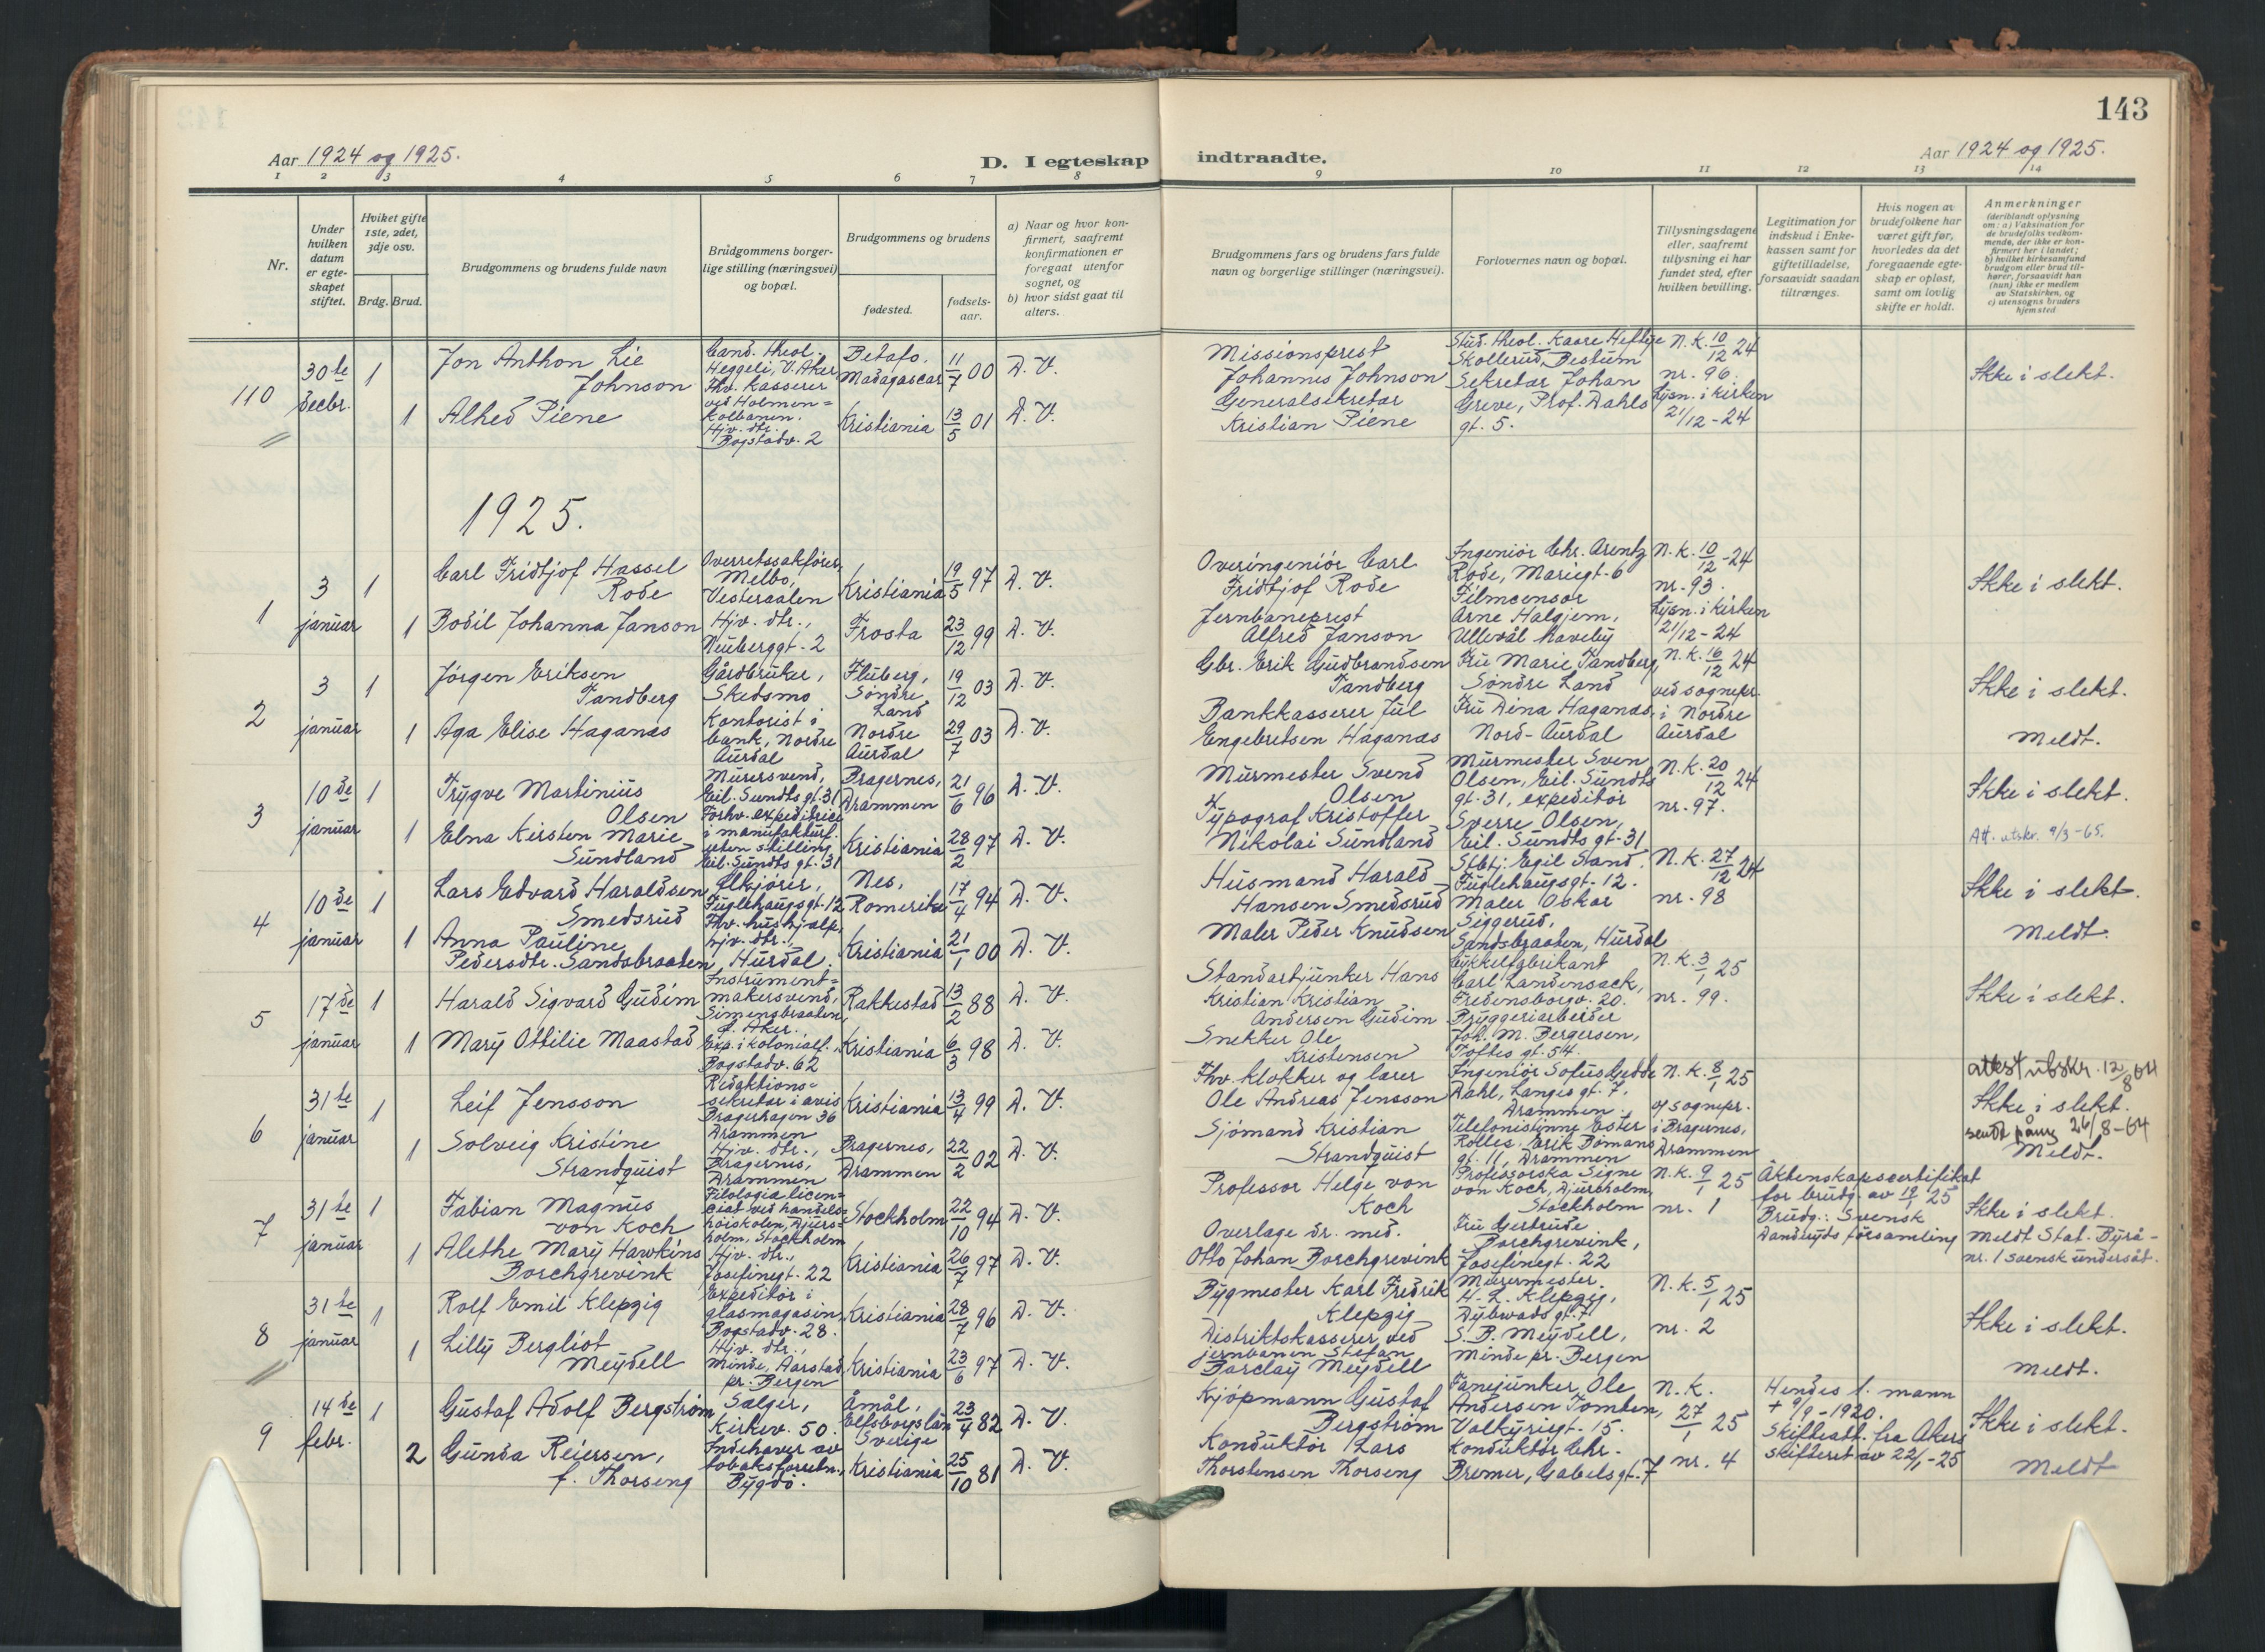 143
Aar 1924 og 1925.
D. I egteskap indtraadte.
Aar 1924 og 1925.
1 2 3 4 5 6 7 8 9 10 11 12 13 14
Nr.
Under hvilken datum er egteskapet stiftet.
Hviket gifte 1ste, 2det, 3dje osv.
Brdg. Brud.
Brudgommens og brudens fulde navn
Brudgommens borgerlige stilling (næringsvei) og bopæl.
Brudgommens og brudens
fødested.
fødselsaar.
a) Naar og hvor konfirmert, saafremt konfirmationen er foregaat utenfor sognet, og
b) hvor sidst gaat til alters.
Brudgommens fars og brudens fars fulde navn og borgerlige stillinger (næringsvei).
Forlovernes navn og bopæl.
Tillysningsdagene eller, saafremt tillysning ei har fundet sted, efter hvilken bevilling.
Legitimation for indskud i Enkekassen samt for giftetilladelse, forsaavidt saadan tiltrænges.
Hvis nogen av brudefolkene har været gift før, hvorledes da det foregaaende egteskap er opløst, samt om lovlig skifte er holdt.
Anmerkninger
(deriblandt oplysning om: a) Vaksination for de brudefolks vedkommende, der ikke er konfirmert her i landet;
b) hvilket kirkesamfund brudgom eller brud tilhører, forsaavidt han (hun) ikke er medlem av Statskirken, og
c) utensogns bruders hjemsted
110
30te decbr.
1
Jon Anthon Lie Johnson
Cand. theol. Heggeli, V. Aker
Betafo. Madagascar
11/7 00
D. V.
Missionsprest Johannes Johnson
Stud. theol. Kaare Heftye Skollerud, Bestum
N. K. 10/12 24
nr. 96.
Ikke i slekt.
1
Alhed Piene
Fhv. kasserer ved Holmenkolbanen. Hjv. dtr. Bogstadv. 2
Kristiania
13/5 01
D. V.
Generalsekretær Kristian Piene
Sekretær Johan Greve, Prof. Dahls gt. 5.
Lysn. i kirken 21/12-24
1925.
1
3 januar
1
Carl Fridtjof Hassel Rode
Overretssakfører, Melbo, Vesteraalen
Kristiania
19/5 97
D. V.
Overingeniør Carl Fridtjof Rode
Ingeniør Chr. Arentz Rode, Mariegt. 6
N. K. 10/12-24
nr. 93.
Ikke i slekt.
1
Bodil Johanna Janson
Hjv. dtr., Neuberggt. 2
Frosta
23/12 99
D. V.
Jernbaneprest Alfred Janson
Filmcensor Arne Halgjem, Ullevål haveby
Lysn. i kirken 21/12-24
2
3 januar
1
Jørgen Eriksen Tandberg
Gårdbruker, Skedsmo
Fluberg, Søndre Land
19/12 03
D. V.
Gbr. Erik Gudbrandsen Tandberg
Fru Marie Tandberg, Søndre Land
N. K. 16/12 24
ved sognepr. i Nordre Aurdal
Ikke i slekt.
1
Aga Elise Haganæs
Kontorist i bank, Nordre Aurdal
Nordre Aurdal
29/7 03
D. V.
Bankkasserer Jul Engebretsen Haganæs
Fru Dina Haganæs, Nord-Aurdal
Meldt.
3
10de januar
1
Trygve Martinius Olsen
Murersvend, Eil. Sundts gt. 31
Bragernes, Drammen
21/6 96
D. V.
Murmester Svend Olsen
Murmester Sven Olsen, Eil. Sundts gt. 31, expeditør
N. K. 20/12 24
nr. 97.
Ikke i slekt.
1
Elna Kirsten Marie Sundland
Forhv. expeditrice i manufakturf. uten stilling Eil. Sundts gt. 31
Kristiania
28/2 97
D. V.
Typograf Kristoffer Nikolai Sundland
Sverre Olsen, Eil. Sundts gt. 31
Att. utskr. 9/3-65.
4
10de januar
1
Lars Edvard Haraldsen Smedsrud
Fuglehaugsgt. 12
Nes, Romerike
17/4 94
D. V.
Husmand Harald Hansen Smedsrud
Egil Sand. Fuglehaugsgt. 12.
N. K. 27/12 24
nr. 98
Ikke i slekt.
1
Anna Pauline Pedersdtr. Sandsbraaten
Fhv. hushjælp, hjv. dtr., Hurdal.
Kristiania
21/1 00
D. V.
Maler Peder Knudsen
Maler Oskar Siggerud, Sandsbraaten, Hurdal
Meldt.
5
17de januar
1
Harald Sigvard Gudim
Instrumentmakersvend, Simensbraaten, Ø. Aker.
Rakkestad
13/2 88
D. V.
Standartjunker Hans Kristian Kristian Andersen Gudim
Cykkelfabrikant Carl Landensack, Fredensborgv. 20.
N. K. 3/1 25
nr. 99.
Ikke i slekt.
1
Mary Ottilie Maastad
Exp. i kolonialf. Bogstadv. 62
Kristiania
6/3 98
D. V.
Snekker Ole Kristensen
Bryggeriarbeider Joh. M. Bergersen, Toftes gt. 54.
6
31te januar
1
Leif Jensson
Redaktionssekretær i avis Bragerhagen 36 Drammen
Kristiania
13/4 99
D. V.
Fhv. klokker og lærer Ole Andreas Jensson
Ingeniør Sofus Gedde Dahl, Langes gt. 7, Drammen.
N. K. 8/1 25
av sognepr. i Bragernes, Drammen
attest utskr. 12/8 64
Ikke i slekt.
1
Solveig Kristine Strandquist
Hjv. dtr., Bragernes, Drammen
Bragernes, Drammen
22/2 02
D. V.
Sjømand Kristian Strandquist
Telefonistinne Ester Rolles, Erik Bømans gt. 11, Drammen
sendt påny 26/8-64
Meldt.
7
31te januar
1
Fabian Magnus von Koch
Filologie licenciat ved handelshøiskolen, Djursholm, Stockholm
Stockholm
22/10 94
D. V.
Professor Helge von Koch
Professorska Signe von Koch, Djursholm, Stockholm
N. K. 9/1 25
nr. 1
Äktenskapscertifikat for brudg. av 19/1 25
Brudg.: Svensk Danderyds församling
Ikke i slekt.
1
Alethe Mary Hawkins Borchgrevink
Hjv. dtr., Josefinegt. 22
Kristiania
26/7 97
D. V.
Overlæge dr. med. Otto Johan Borchgrevink
Fru Gertrude Borchgrevink, Josefinegt. 22
Meldt Stat. Byrå - nr. 1 svensk undersåt.
8
31te januar
1
Rolf Emil Klepzig
Expeditør i glasmagasin, Bogstadv. 28.
Kristiania
28/7 96
D. V.
Bygmester Karl Fredrik Klepzig
Murermester H. L. Klepzig, Dybwads gt. 7
N. K. 5/1 25
nr. 2
Ikke i slekt.
1
Lilly Bergliot Meydell
Hjv. dtr., Minde, Aarstad pr. Bergen
Kristiania
23/6 97
D. V.
Distriktskasserer ved jernbanen Stefan Barclay Meydell
S. B. Meydell, Minde pr. Bergen
Meldt.
9
14de febr.
1
Gustaf Adolf Bergstrøm
Sælger, Kirkev. 50.
Åmål, Elfsborgs län Sverige
23/4 82
D. V.
Kjøpmann Gustaf Bergstrøm
Fanejunker Ole Andersen Tomten, Valkyriegt. 15.
N. K. 27/1 25
nr. 4
Hendes 1. mann + 9/9-1920.
Skifteatt. fra Akers skifteret av 22/1-25
Ikke i slekt.
2
Gunda Reiersen, f. Thorseng
Indehaver av tobaksforretn., Bygdø.
Kristiania
25/10 81
D. V.
Konduktør Lars Thorstensen Thorseng
Konduktør Chr. Bremer, Gabelsgt. 7
Meldt